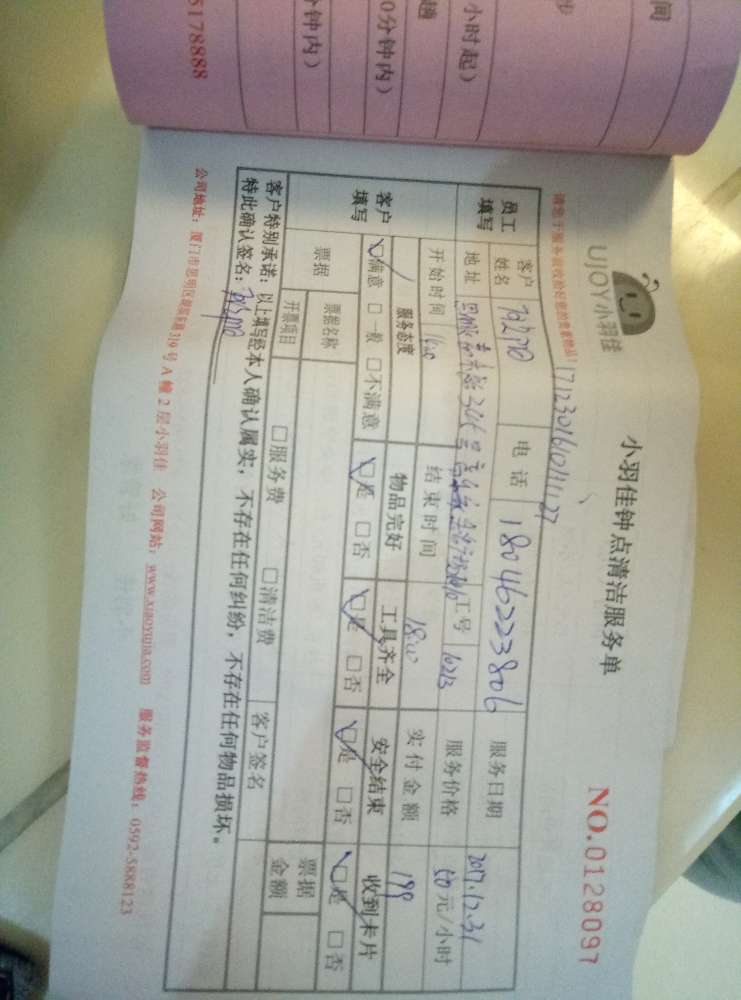 间
步
小时起）
趟
0分钟内）
钟内）
5178888
UJOY小羽佳
小羽佳钟点清洁服务单
NO.0128097
请您于服务前收检好您的贵重物品！
员工填写
客户姓名
电话
18046223806
服务日期
2017.12.31
地址
工号
10213
服务价格
50元/小时
开始时间
结束时间
18:00
实付金额
199
客户填写
服务态度
物品完好
工具齐全
安全结束
收到卡片
☑满意 □一般 □不满意
☑是 □否
☑是 □否
☑是 □否
☑是 □否
票据
票据名称
票据金额
开票项目
□服务费 □清洁费
客户签名
客户特别承诺：以上填写经本人确认属实，不存在任何纠纷，不存在任何物品损坏。
特此确认签名：
公司地址：厦门市思明区湖滨东路319号A幢2层小羽佳 公司网站：www.xiaoyujia.com 服务监督热线：0592-5888123